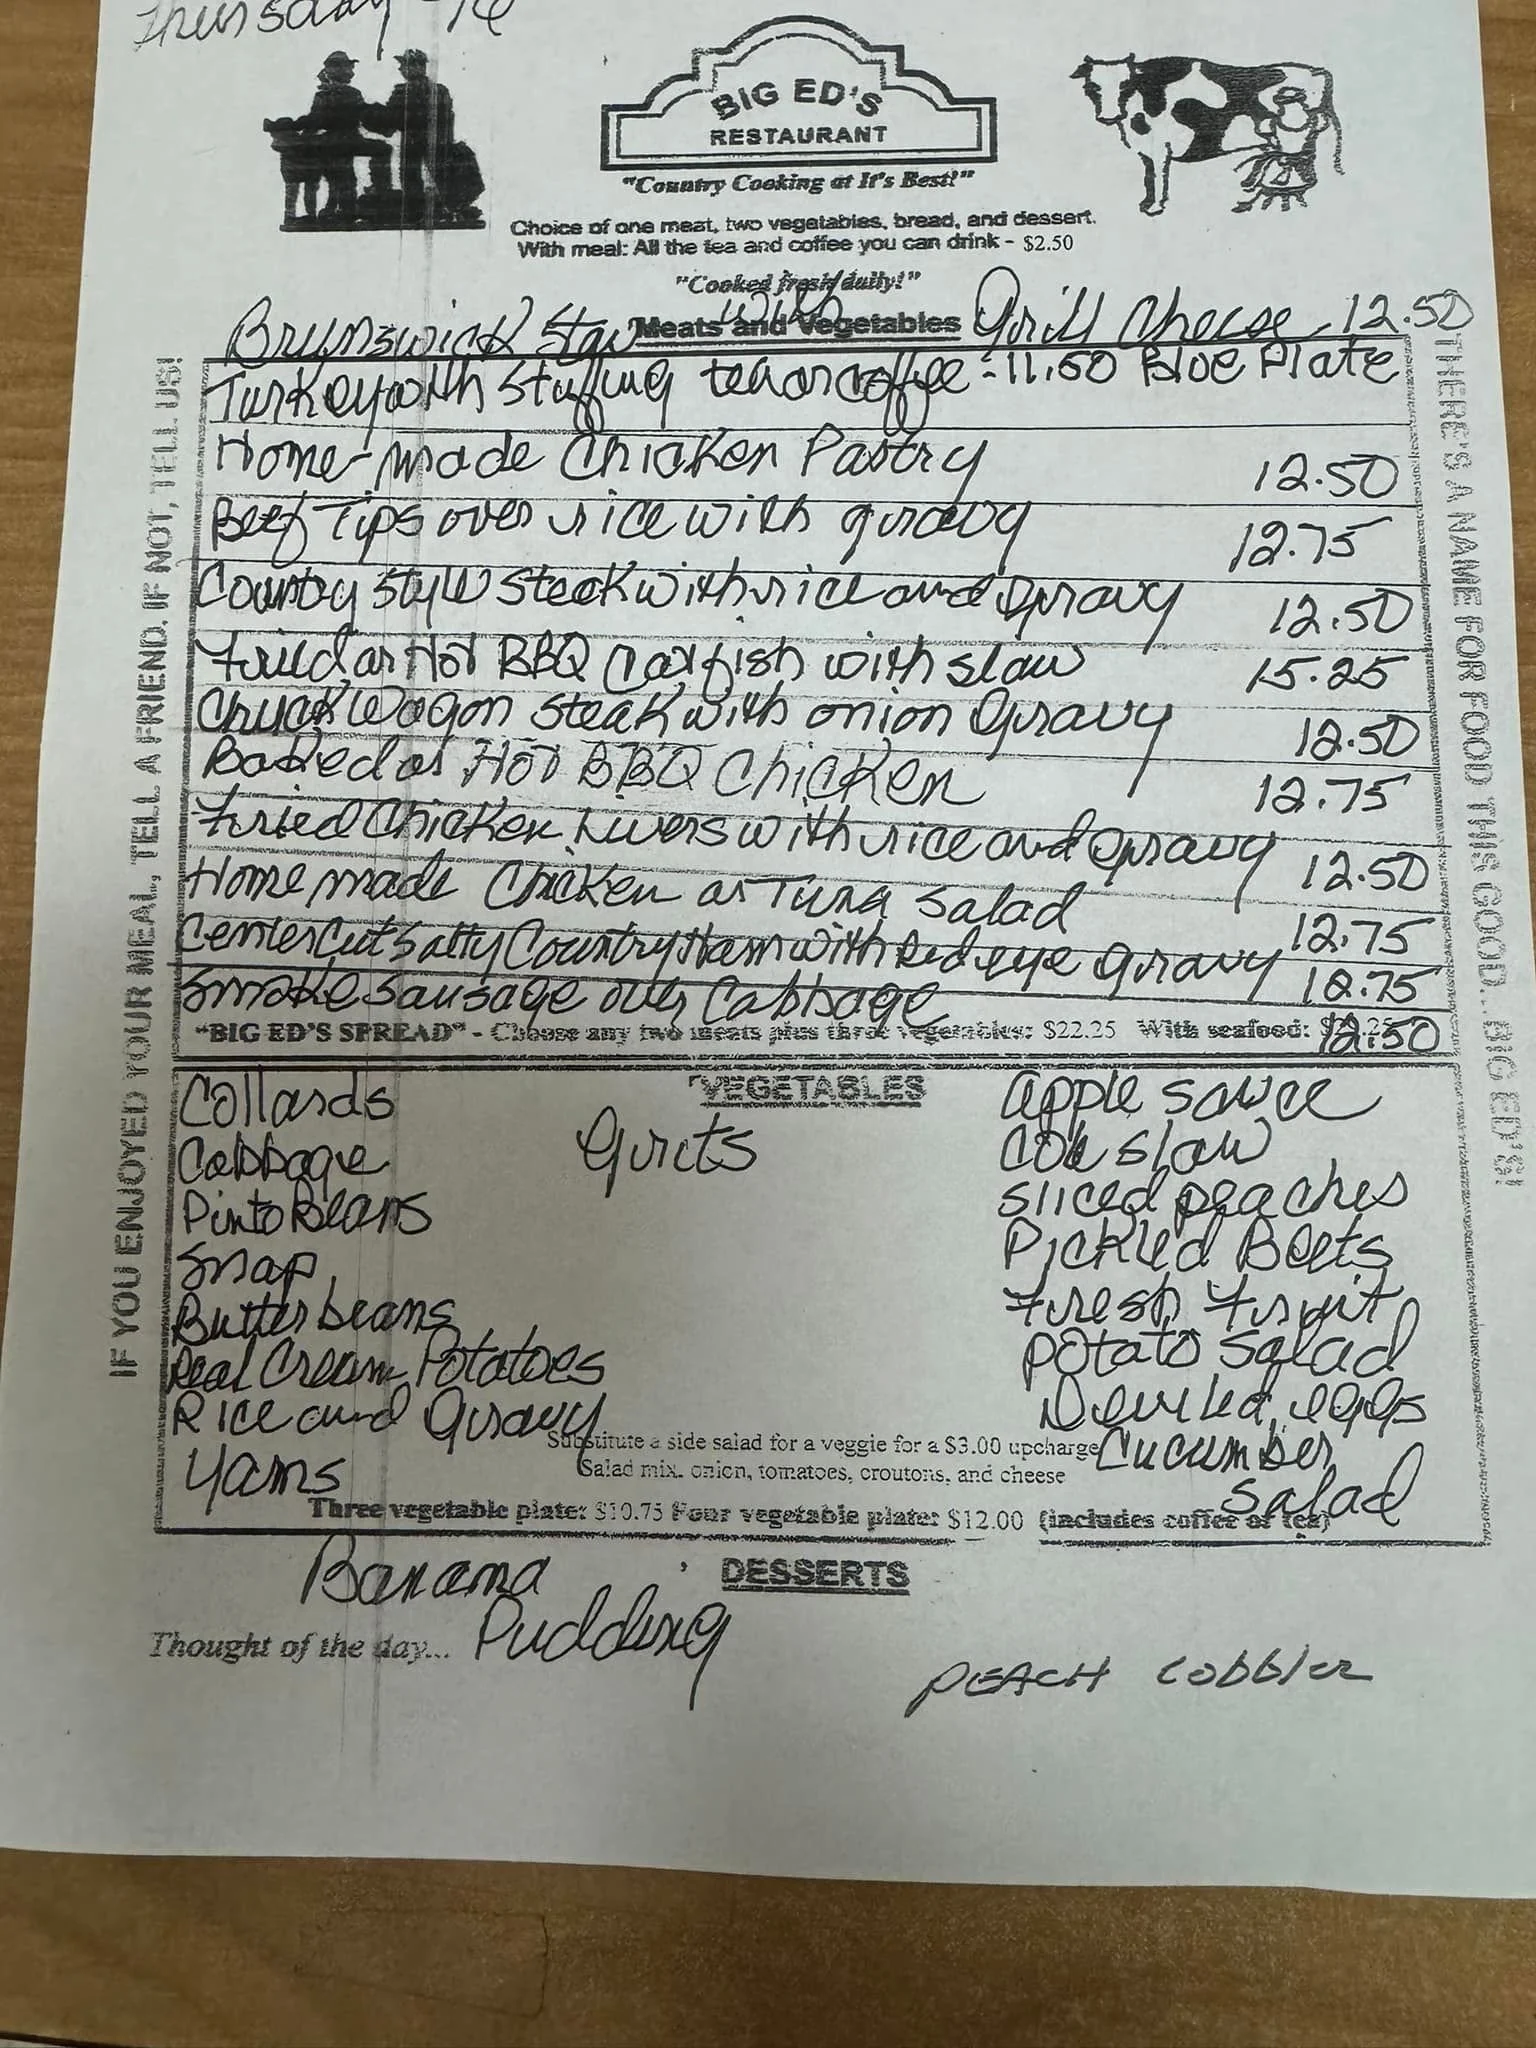 Thursday - 16
BIG ED'S
RESTAURANT
"Country Cooking at It's Best!"
Choice of one meat, two vegatables, bread, and dessert.
With meal: All the tea and coffee you can drink - $2.50
"Cooked fresh daily!"
Brunswick Stew with Grill Cheese 12.50
Meats and Vegetables
Turkey with Stuffing tea or coffee - 11.50 Blue Plate
Home-made Chicken Pastry 12.50
Beef Tips over rice with gravy 12.75
Country Style Steak with rice and gravy 12.50
Fried or Hot BBQ Catfish with slaw 15.25
Chuck Wagon Steak with onion Gravy 12.50
Baked or Hot BBQ Chicken 12.75
Fried Chicken Livers with rice and gravy 12.50
Home made Chicken or Tuna Salad 12.75
Center Cut Salty Country Ham with Red eye gravy 12.75
Smoke Sausage over Cabbage 12.50
"BIG ED'S SPREAD" - Choose any two meats plus three vegetables: $22.25 With seafood:
"VEGETABLES
Collards
Cabbage
Pinto Beans
Snap
Butter beans
Real Cream Potatoes
Rice and Gravy
Yams
Grits
Apple Sauce
Cole slaw
Sliced peaches
Pickled Beets
Fresh Fruit
Potato Salad
Deviled eggs
Cucumber
Salad
Substitute a side salad for a veggie for a $3.00 upcharge
Salad mix. onion, tomatoes, croutons, and cheese
Three vegetable plate: $10.75 Four vegetable plate: $12.00 (includes coffee or tea)
DESSERTS
Banana
Pudding
Thought of the day...
PEACH cobbler
IF YOU ENJOYED YOUR MEAL, TELL A FRIEND. IF NOT, TELL US!
THERE'S A NAME FOR FOOD THIS GOOD...BIG ED'S!